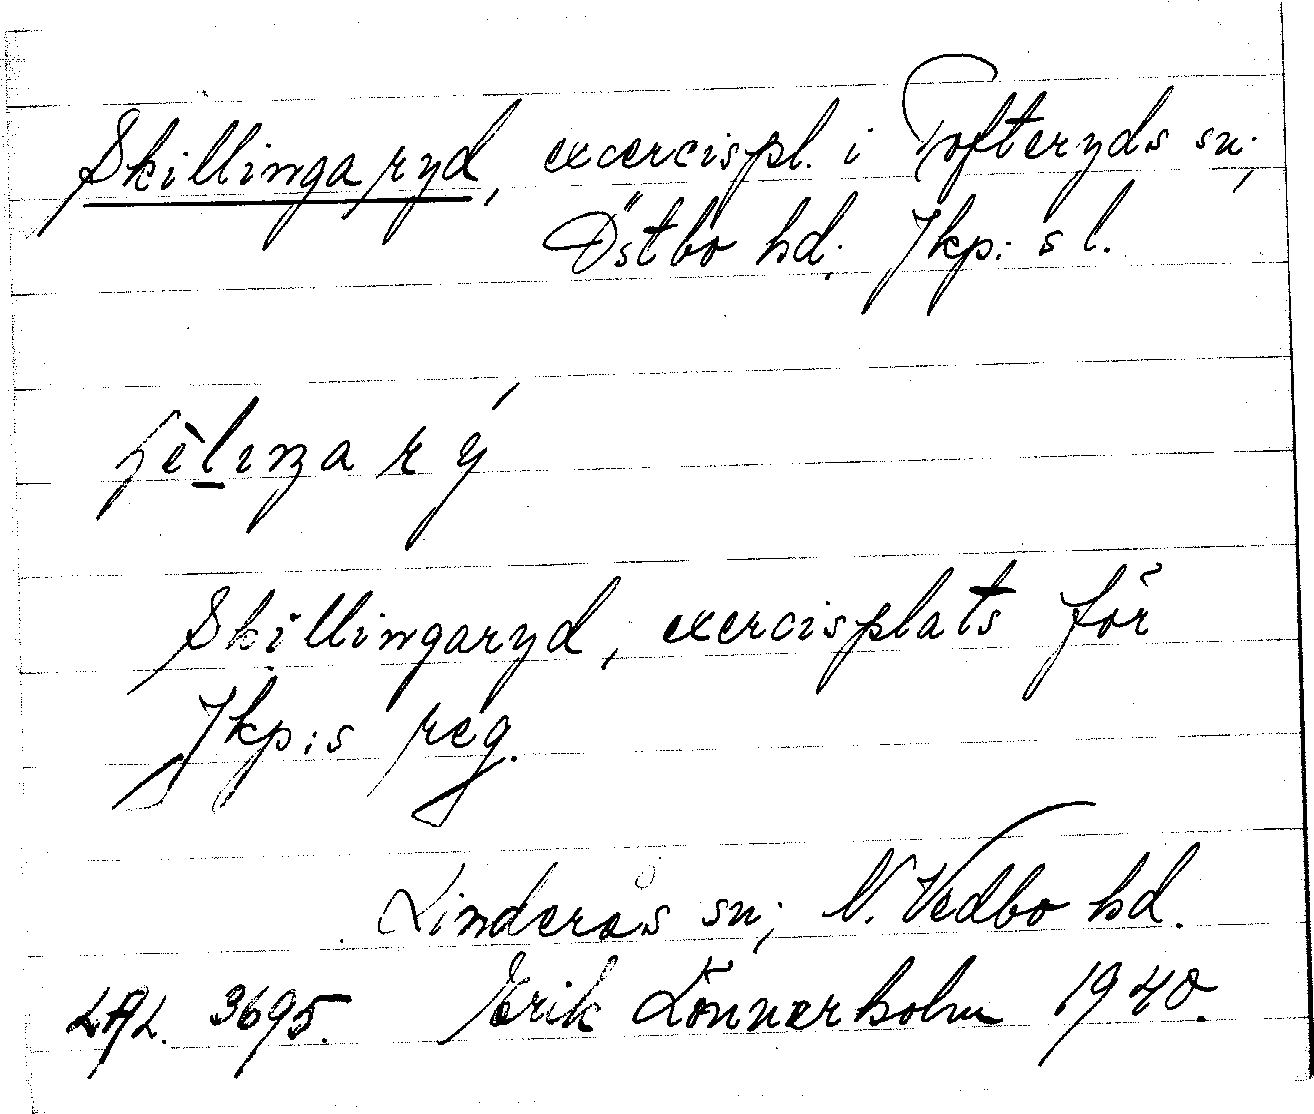 Skillingaryd, excercispl. i Tofteryds sn;
Östbo hd. Jkp:s l.
Skillingaryd, exercisplats för
Jkp:s reg.
Linderås sn; N. Vedbo hd.
LAL. 3695. Erik Lönnerholm 1940.